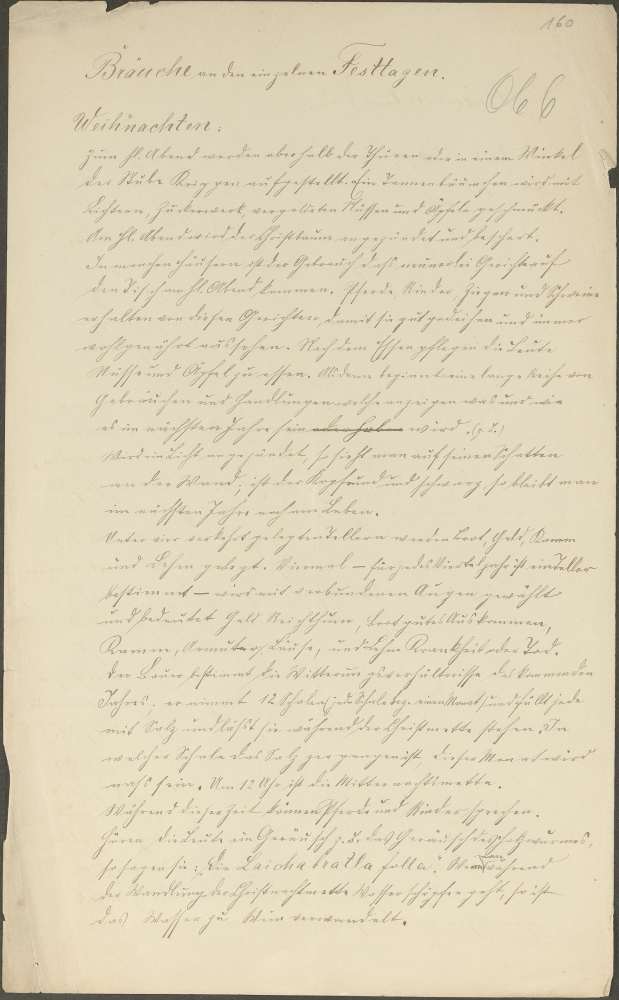 160
Bräuche an den einzelnen Festtagen.
Ob 6
Weihnachten:
Zum hl. Abend werden oberhalb der Thüren oder in einem Winkel
der Stube Krippen aufgestellt. Ein Tannenbäumchen wird mit
Lichtern, Zuckerwerk, vergoldeten Nüssen und Äpfeln geschmückt.
Am hl. Abend wird der Christbaum angezündet und beschert.
In manchen Häusern ist der Gebrauch, daß neunerlei Gerichte auf
den Tisch am hl. Abend kommen. Pferde, Rinder, Ziegen und Schweine
erhalten von diesen Gerichten, damit sie gut gedeihen und immer
wohlgenährt aussehen. Nach dem Essen pflegen die Leute
Nüsse und Äpfel zu essen. Alsdann beginnt eine lange Reihe von
Gebräuchen und Handlungen welche anzeigen was und wie
es im nächsten Jahre sein oder haben wird. (z. B.)
Wird ein Licht angezündet, so sieht man auf seinen Schatten
an der Wand; ist der Kopf rund und schwarz, so bleibt man
im nächsten Jahre noch am Leben.
Unter vier verkehrt gelegten Tellern werden Brot, Geld, Kamm
und Lehm gelegt. Viermal – für jedes Vierteljahr ist ein Teller
bestimmt – wird mit verbundenen Augen gewählt
und bedeutet Geld Reichthum, Brot gutes Auskommen,
Kamm, Armut Läuse, und Lehm Krankheit oder Tod.
Der Bauer bestimmt die Witterungsverhältnisse des kommenden
Jahres. er nimmt 12 Schalen (jede Schale bez. einen Monat) und füllt jede
mit Salz und läßt sie während der Christmette stehen. In
welcher Schale das Salz zergangen ist, dieser Monat wird
naß sein. Um 12 Uhr ist die Mitternachtsmette.
Während dieser Zeit können Pferde und Rinder sprechen.
Hören die Leute ein Geräusch z. B. das Geräusch des Holzwurmes,
so sagen sie: "die Laichabratla folla". Wenn man während
der Wandlung der Christnachtmette Wasser schöpfen geht, so ist
das Wasser zu Wein verwandelt.